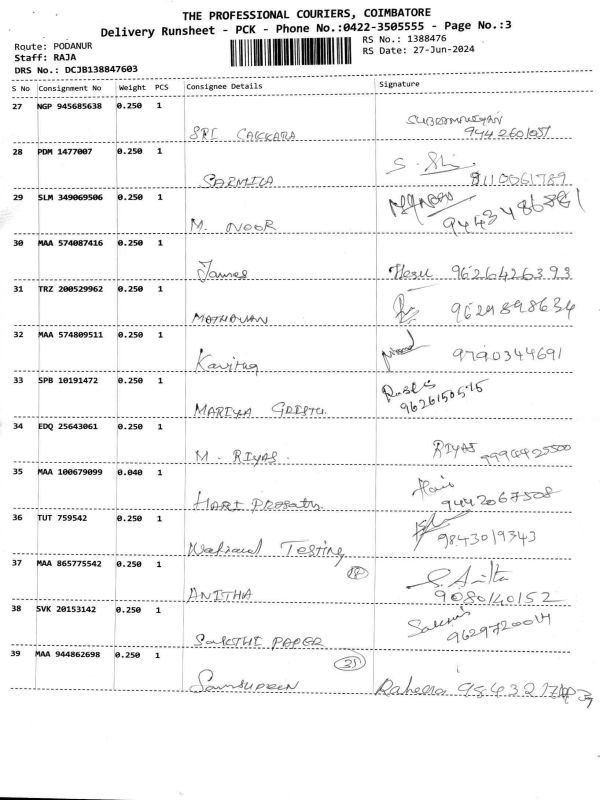 THE PROFESSIONAL COURIERS, COIMBATORE
Delivery Runsheet - PCK - Phone No.:0422-3505555 - Page No.:3
Route: PODANUR
RS No.: 1388476
Staff: RAJA
RS Date: 27-Jun-2024
DRS No.: DCJB138847603
S No Consignment No Weight PCS Consignee Details Signature
27 NGP 945685638 0.250 1
SRI CAKKARA
28 PDM 1477007 0.250 1
SARMILA 8110061789
29 SLM 349069506 0.250 1
M. NOOR
30 MAA 574087416 0.250 1
James 9626426393
31 TRZ 200529962 0.250 1
9629898634
32 MAA 574809511 0.250 1
Kavitha 9790344691
33 SPB 10191472 0.250 1
MARIYA 9626150515
34 EDQ 25643061 0.250 1
M. RIYAS. RIYAS
35 MAA 100679099 0.040 1
HARI Hari
9442067508
36 TUT 759542 0.250 1
National Testing 9843019343
37 MAA 865775542 0.250 1
ANITHA S. Anitha
9080140152
38 SVK 20153142 0.250 1
SAKTHI PAPER
39 MAA 944862698 0.250 1
35